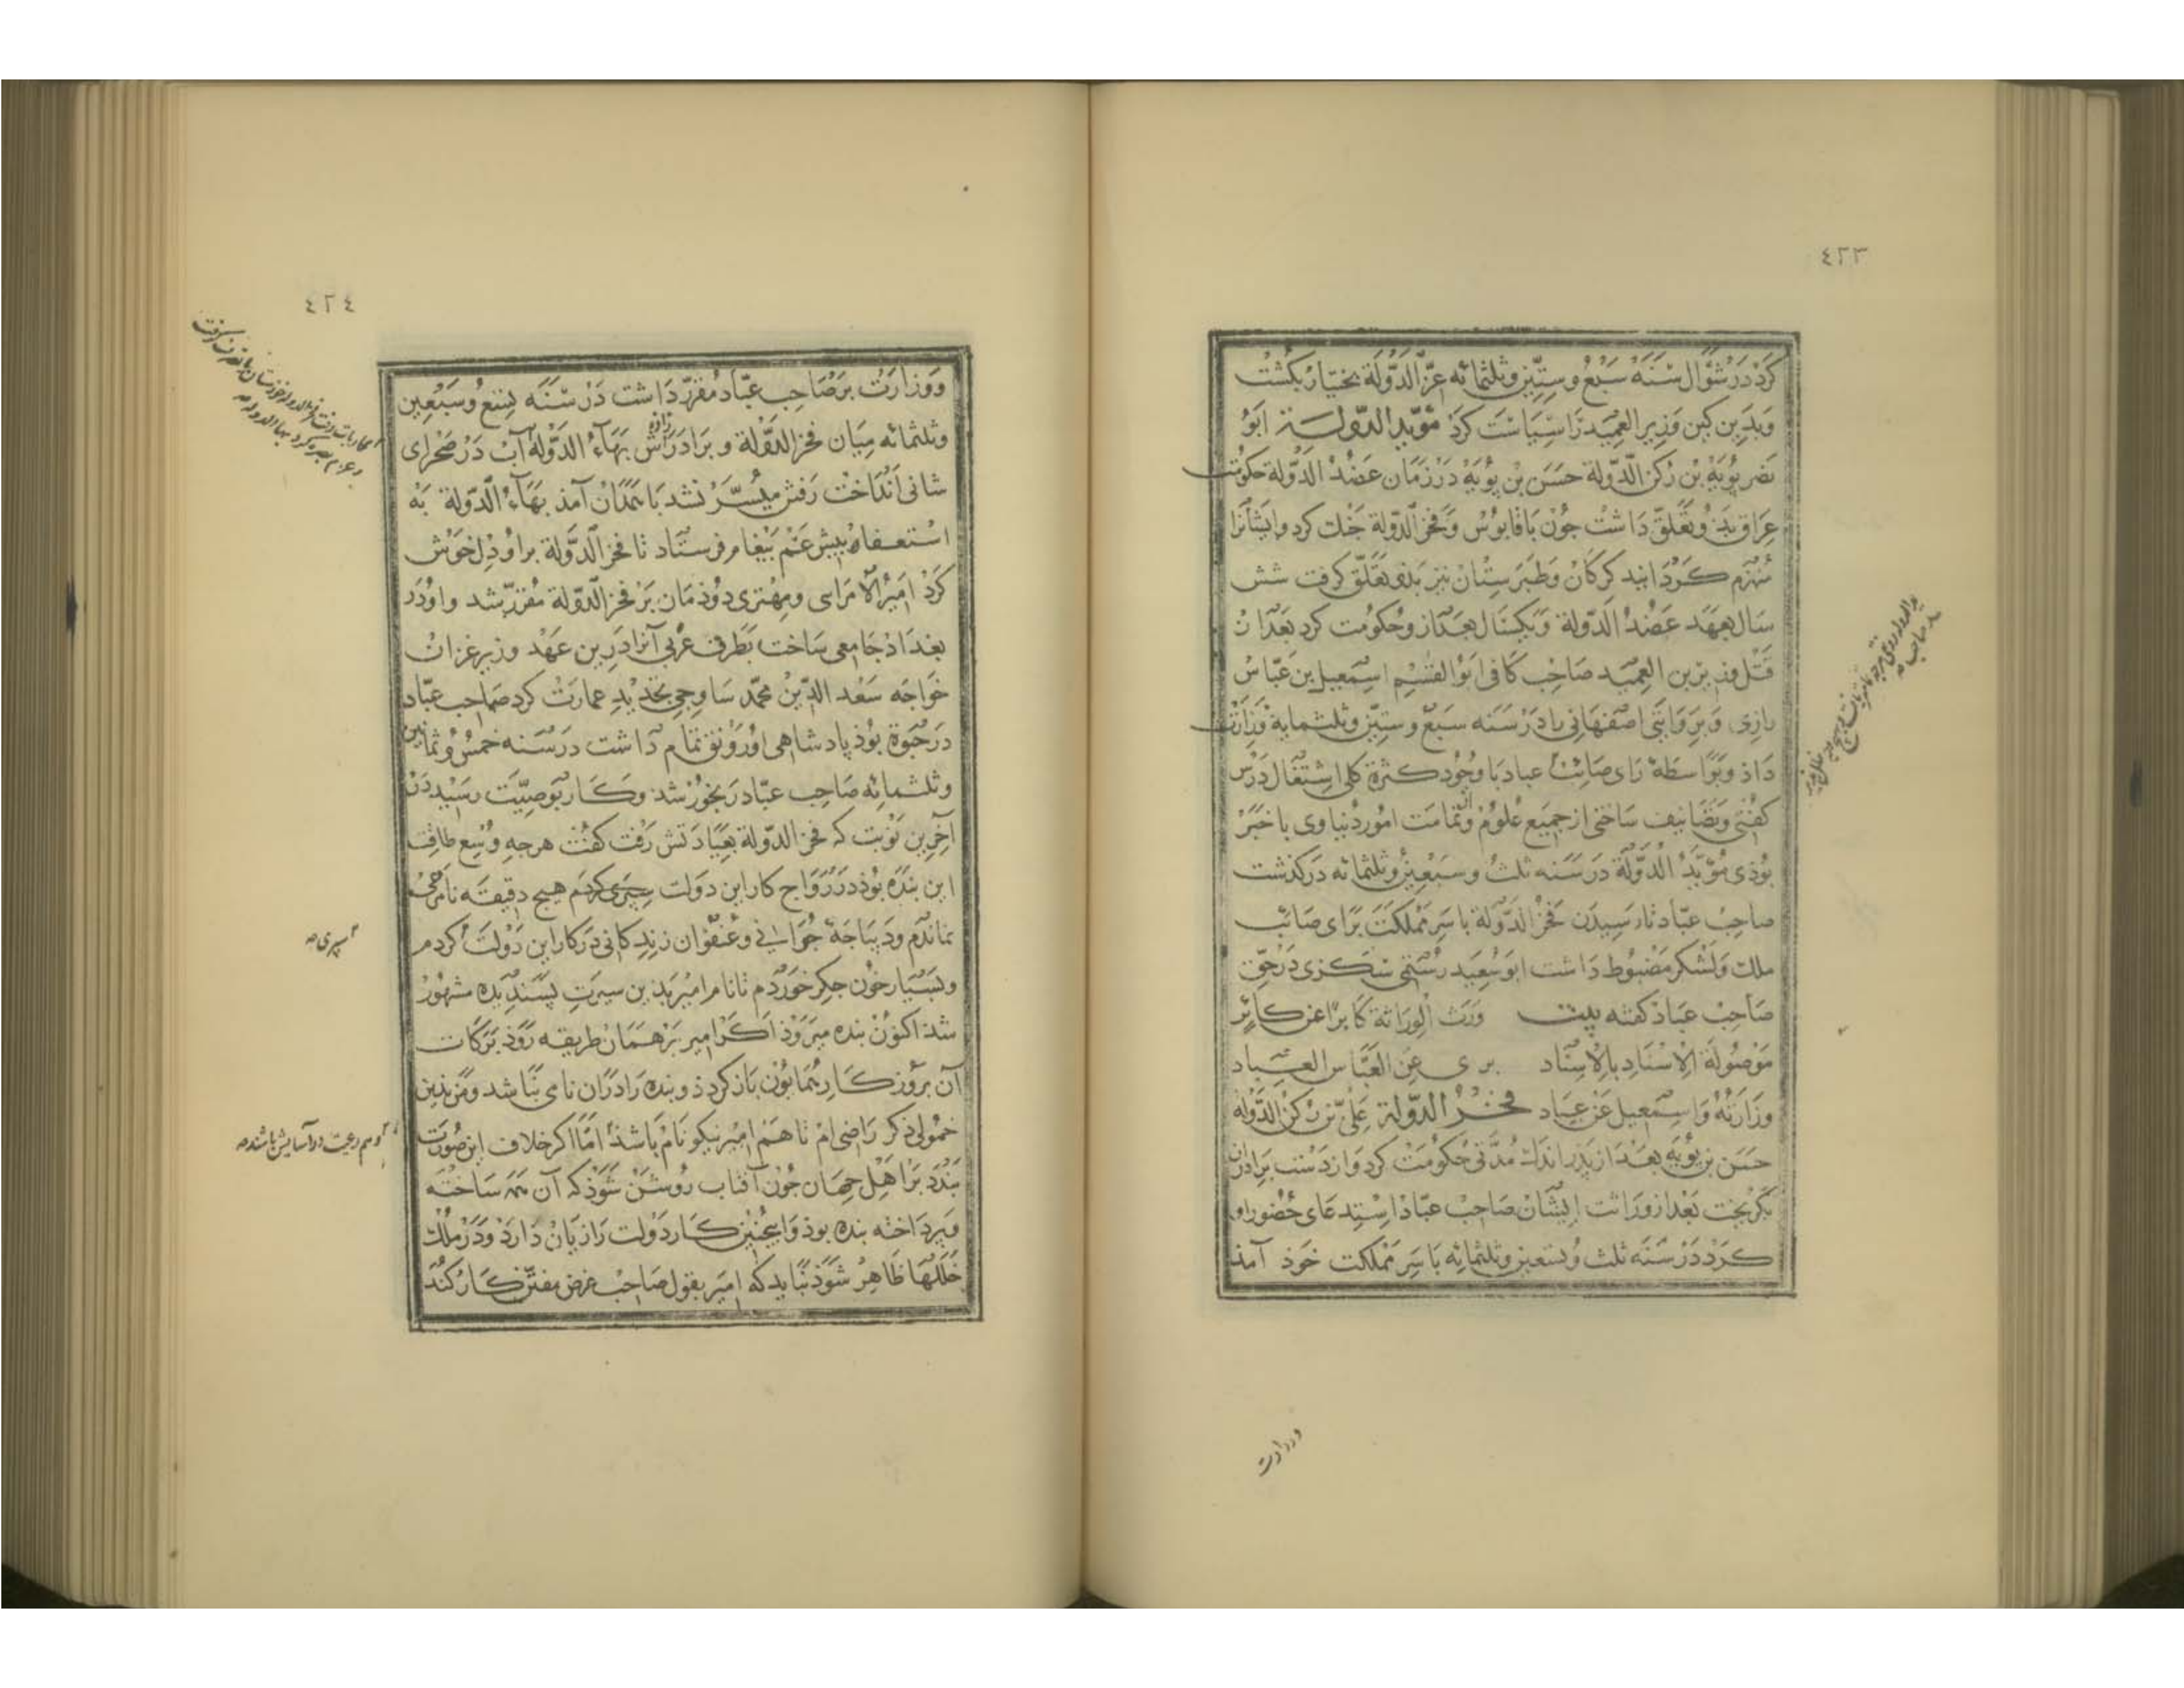 ٤٢٣
كرد در شوّال سنه سبع وستّین وثلثمائه عزّ الدّولة بختیار بكشت
وبدین كین وزیر العمید را سیاست كرد مؤید الدّولة ابو
نصر بویه بن ركن الدّولة حسن بن بویه در زمان عضد الدّولة حكومت
عراق بذو تعلّق داشت جون با قابوس وفخر الدّولة جنك كرد وایشانرا
منهزم كردانید كركان وطبرستان نیز بذو تعلّق كرفت شش
سال بعهد عضد الدّولة ویكسال بعد ازو حكومت كرد بعد از
قتل وزیر بن العمید صاحب كافی ابو القسم اسمعیل بن عبّاس
رازی وبروایتی اصفهانی را در سنه سبع وستین وثلثمایة وزارت
داذ وبواسطه رای صائب عباد با وجود كثرة كلی اشتغال درس
كفتی وتصانیف ساختی از جمیع علوم وتمامت امور دنیاوی با خبر
بوذی مؤید الدّولة در سنه ثلث وسبعین وثلثمائه دركذشت
صاحب عبّاد تا رسیدن فخر الدّولة باسر مملكت برای صائب
ملك ولشكر مضبوط داشت ابو سعید رستمی در حق
صاحب عباد كفته بیت ورث الوزاثة كابرا عن كابر
موصولة الاسناد بالاسناد یروی عن العبّاس العباد
وزارته واسمعیل عن عباد فخر الدّولة علی بن ركن الدّولة
حسن بن بویه بعد از پذر اندك مدّتی حكومت كرد واز دست برادران
بكریخت بعد از وراثت ایشان صاحب عبّاد استدعای حضور او
كرد در سنه ثلث وسبعین وثلثمائه باسر مملكت خوذ آمذ
ووزارت
٤٢٤
ووزارت بر صاحب عبّاد مقرّر داشت در سنه تسع وسبعین
وثلثمائه میان فخر الدّولة وبرادرزاده اش بهاء الدّولة آب در صحرای
شانی انداخت رفتن میسّر نشد با همدان آمذ بهاء الدّولة به
استعفاء بیش عم بیغام فرستاد تا فخر الدّولة براو دل خوش
كرد امیر الامرایی ومهتری دوذمان بر فخر الدّولة مقرّر شد واو در
بغداد جامعی ساخت بطرف غربی آنرا درین عهد وزیر غزان
خواجه سعد الدّین محمّد ساوجی تجدید عمارت كرد صاحب عبّاد
در حیوة بوذ پادشاهی او رونق تمام داشت در سنه خمس وثمانین
وثلثمائه صاحب عبّاد رنجور شد وكار بوصیّت رسید در
آخرین نوبت كه فخر الدّولة بعیادتش رفت كفت هرجه وسع طاقت
این بنده بوذ در رواج كار این دولت سپری كردم هیج دقیقه نامرعی
نماندم ودیباجة جوانی وعنفوان زندكانی در كار این دولت كردم
وبسیار خون جكر خوردم تا نام امیر بذین سیرت پسندیده مشهور
شذ اكنون بنده میروذ اكر امیر بر همان طریقه روذ بركات
آن بروزكار همایون باز كردذ وبنده را در آن نامی نباشد ومن بذین
خمولی ذكر راضی ام تا هم امیر نیكو نام باشذ امّا اكر خلاف این صورت
بندد بر اهل جهان جون آفتاب روشن شوذ كه آن همه ساخته
وپرداخته بنده بوذ واینجنین كار دولت را زیان دارد ودر ملك
خللها ظاهر شوذ نباید كه امیر بقول صاحب غرض مفتن كار كند
سپری صه
وهم رعیت در آسایش باشند صه